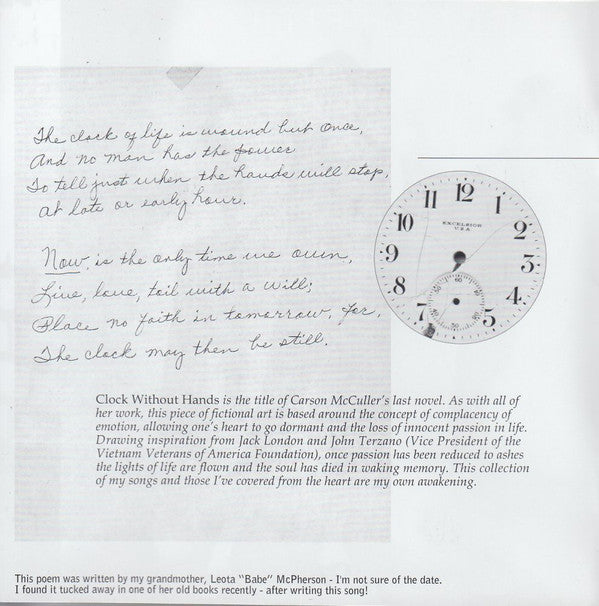 The clock of life is wound but once,
And no man has the power
To tell just when the hands will stop,
At late or early hour.
Now, is the only time we own,
Live, love, toil with a will;
Place no faith in tomorrow, for,
The clock may then be still.
EXCELSIOR
U.S.A.
12
11
10
9
8
7
5
4
3
2
60
Clock Without Hands is the title of Carson McCuller's last novel. As with all of
her work, this piece of fictional art is based around the concept of complacency of
emotion, allowing one's heart to go dormant and the loss of innocent passion in life.
Drawing inspiration from Jack London and John Terzano (Vice President of the
Vietnam Veterans of America Foundation), once passion has been reduced to ashes
the lights of life are flown and the soul has died in waking memory. This collection
of my songs and those I've covered from the heart are my own awakening.
This poem was written by my grandmother, Leota "Babe" McPherson - I'm not sure of the date.
I found it tucked away in one of her old books recently - after writing this song!